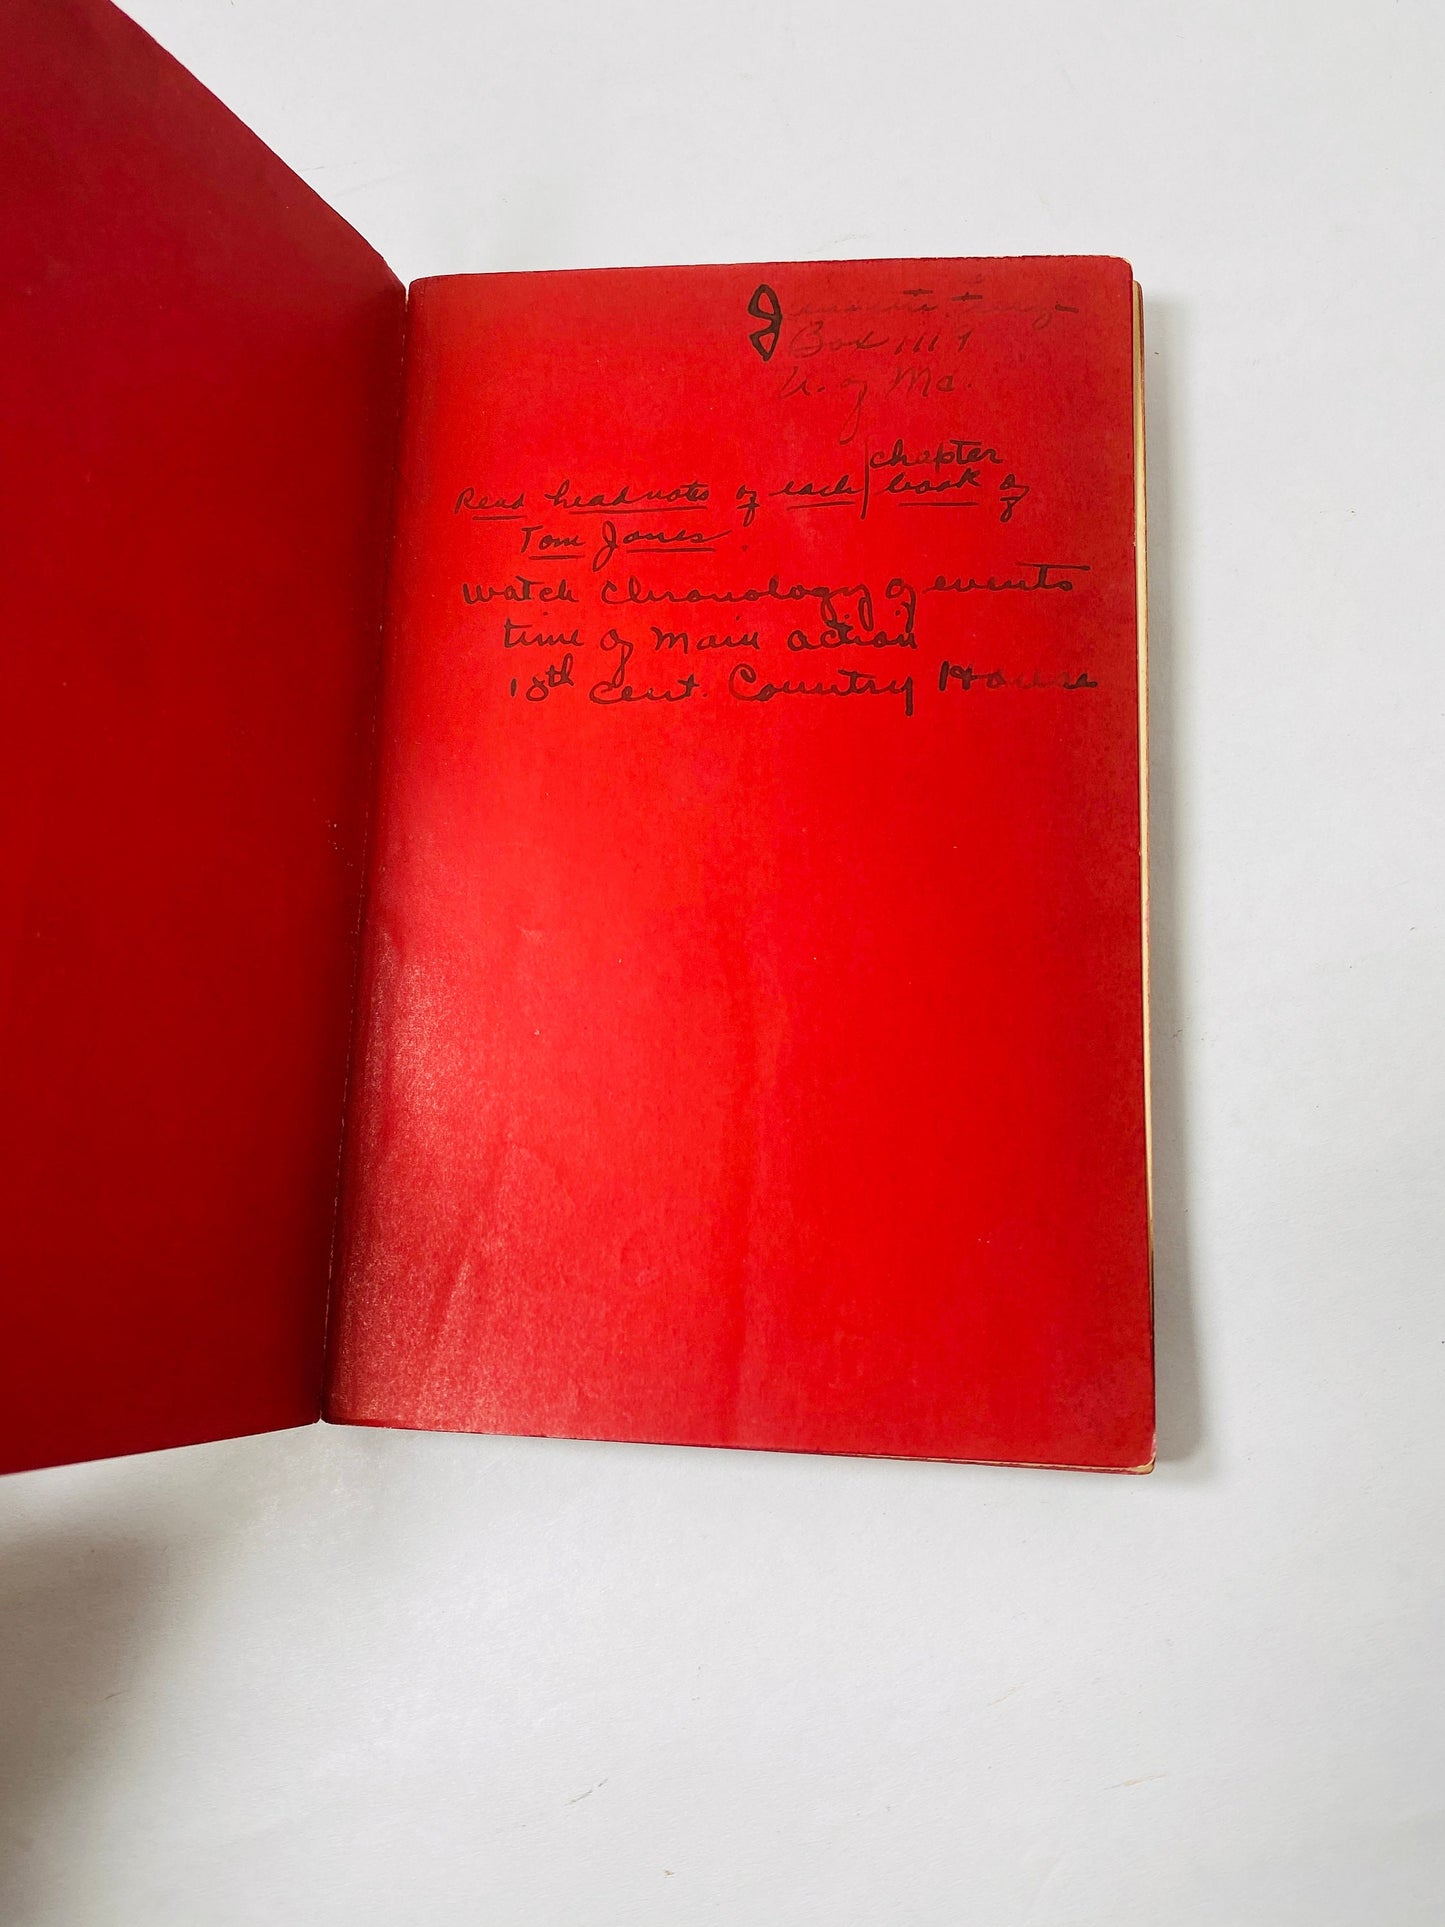 Box 1119
U. of Md.
chapter
Read headnotes of each | book of
Tom Jones.
Watch chronology of events
time of main action
18th cent. Country House